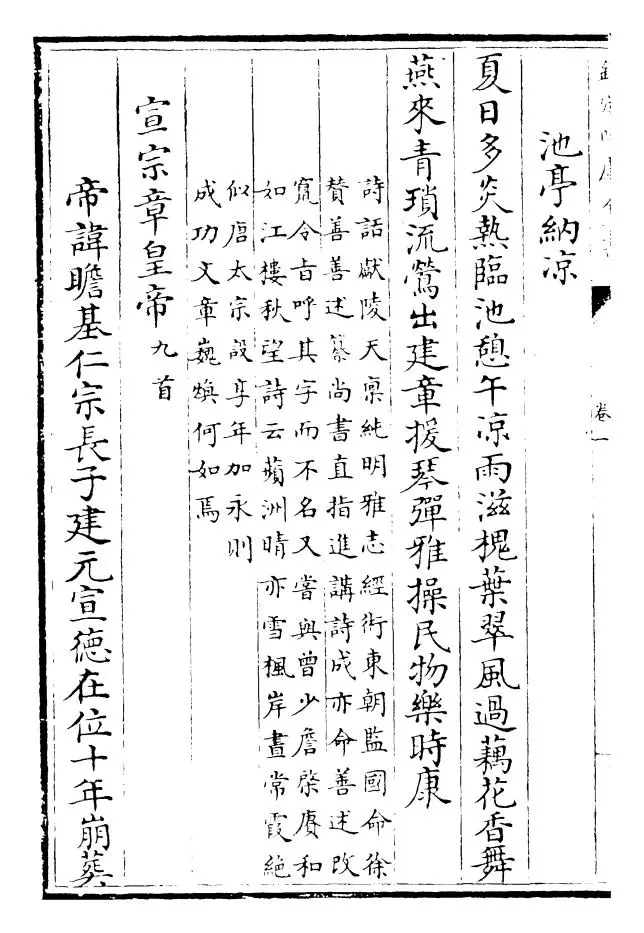 卷一
池亭納凉
夏日多炎熱臨池憩午凉雨滋槐葉翠風過藕花香舞
燕來青瑣流鶯出建章援琴彈雅操民物樂時康
詩話獻陵天禀純明雅志經術東朝監國命徐
賛善善述纂尚書直指進講詩成亦命善述改
竄令旨呼其字而不名又嘗與曾少詹棨賡和
如江樓秋望詩云蘋洲晴亦雪楓岸晝常霞絶
似唐太宗設享年加永則
成功文章巍煥何如焉
宣宗章皇帝九首
帝諱瞻基仁宗長子建元宣徳在位十年崩葬